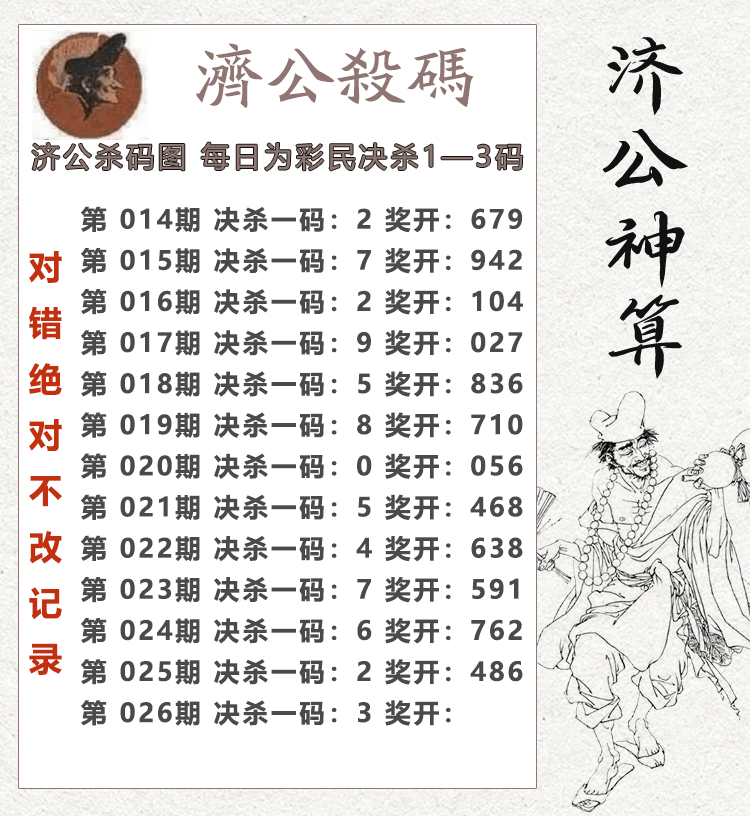 濟公殺碼
济公杀码图 每日为彩民决杀1—3码
第 014期 决杀一码：2 奖开：679
第 015期 决杀一码：7 奖开：942
第 016期 决杀一码：2 奖开：104
第 017期 决杀一码：9 奖开：027
第 018期 决杀一码：5 奖开：836
第 019期 决杀一码：8 奖开：710
第 020期 决杀一码：0 奖开：056
第 021期 决杀一码：5 奖开：468
第 022期 决杀一码：4 奖开：638
第 023期 决杀一码：7 奖开：591
第 024期 决杀一码：6 奖开：762
第 025期 决杀一码：2 奖开：486
第 026期 决杀一码：3 奖开：
对错绝对不改记录
济公神算